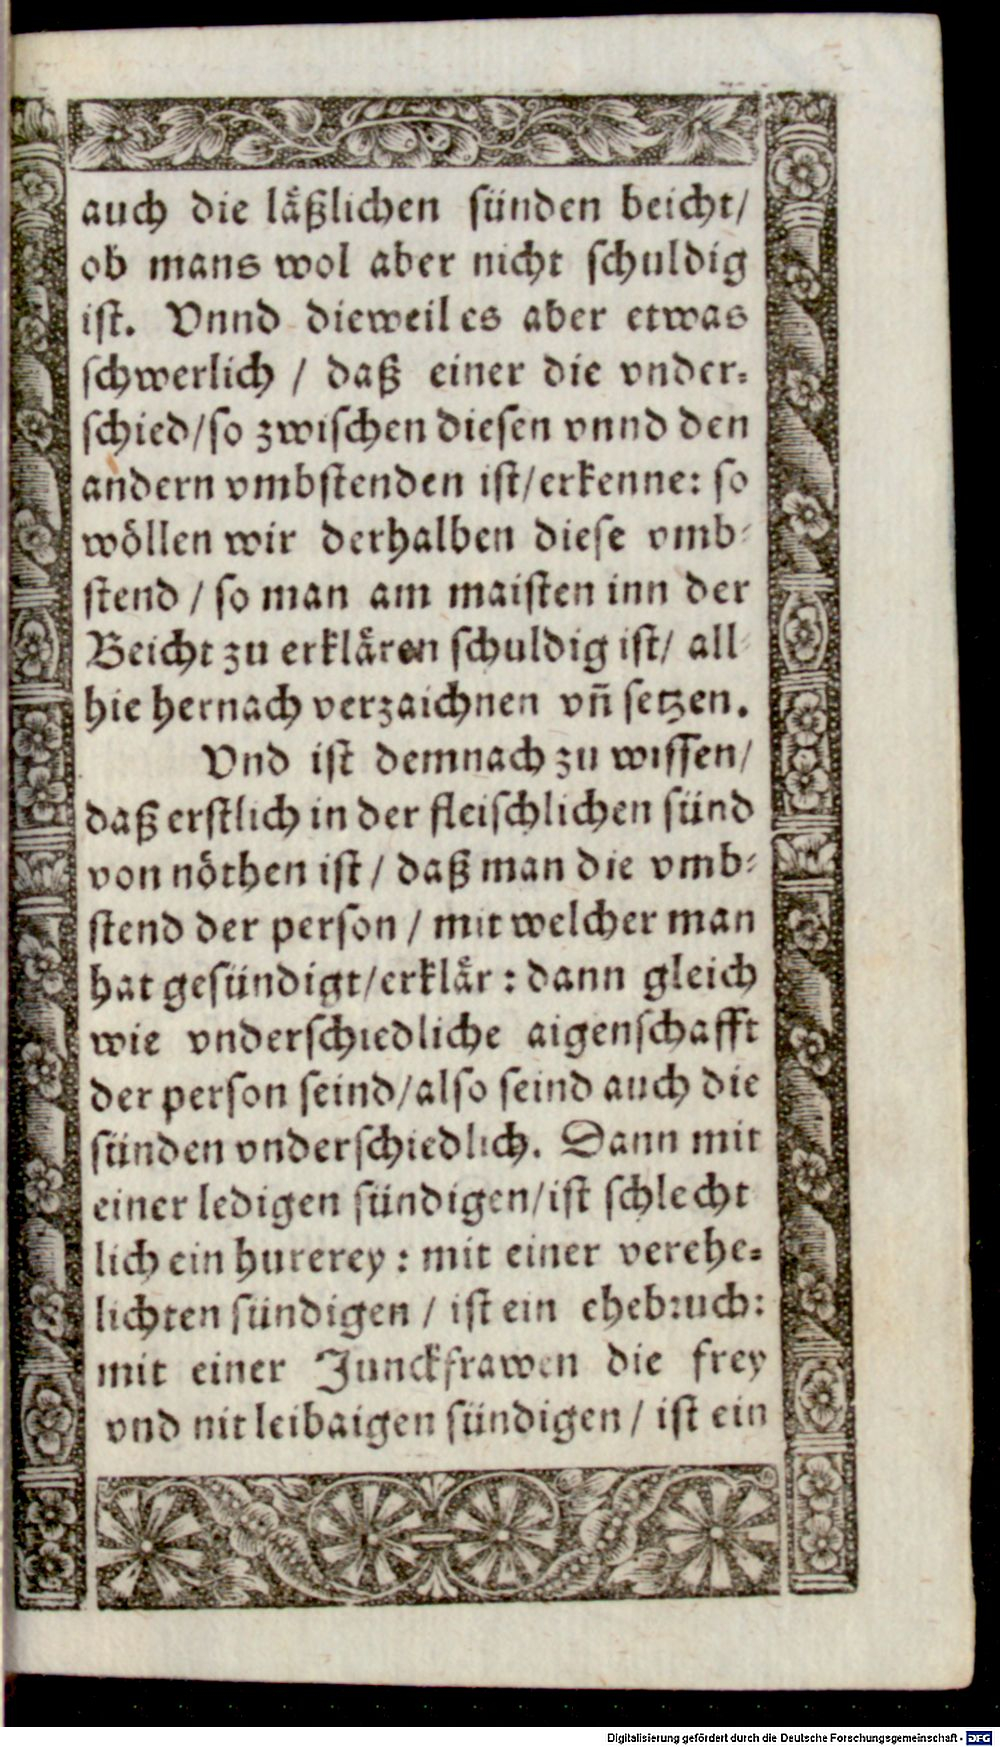 auch die läßlichen sünden beicht/
ob mans wol aber nicht schuldig
ist. Vnnd dieweil es aber etwas
schwerlich / daß einer die vnder-
schied/so zwischen diesen vnnd den
andern vmbstenden ist/erkenne: so
wöllen wir derhalben diese vmb-
stend / so man am maisten inn der
Beicht zu erklären schuldig ist/ all-
hie hernach verzaichnen vñ setzen.
Vnd ist demnach zu wissen/
daß erstlich in der fleischlichen sünd
von nöthen ist / daß man die vmb-
stend der person / mit welcher man
hat gesündigt/erklär : dann gleich
wie vnderschiedliche aigenschafft
der person seind/also seind auch die
sünden vnderschiedlich. Dann mit
einer ledigen sündigen/ist schlecht
lich ein hurerey : mit einer verehe-
lichten sündigen / ist ein ehebruch:
mit einer Junckfrawen die frey
vnd nit leibaigen sündigen / ist ein
Digitalisierung gefördert durch die Deutsche Forschungsgemeinschaft - DFG